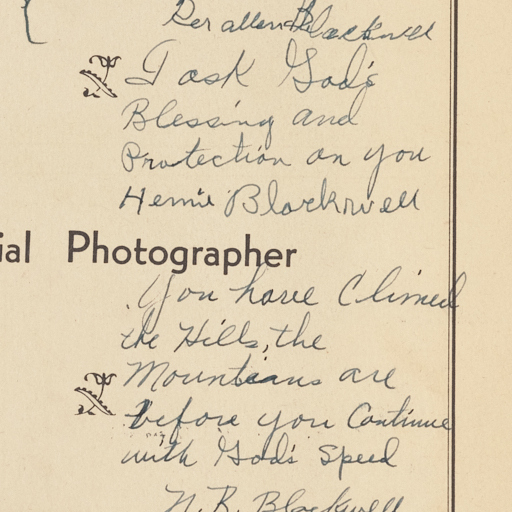 Rev allen Blackwell
I ask God's
Blessing and
Protection on you
Hennie Blackwell
ial Photographer
You have Climed
the Hills, the
Mountians are
before you Continue
with God's Speed
N. R. Blackwell